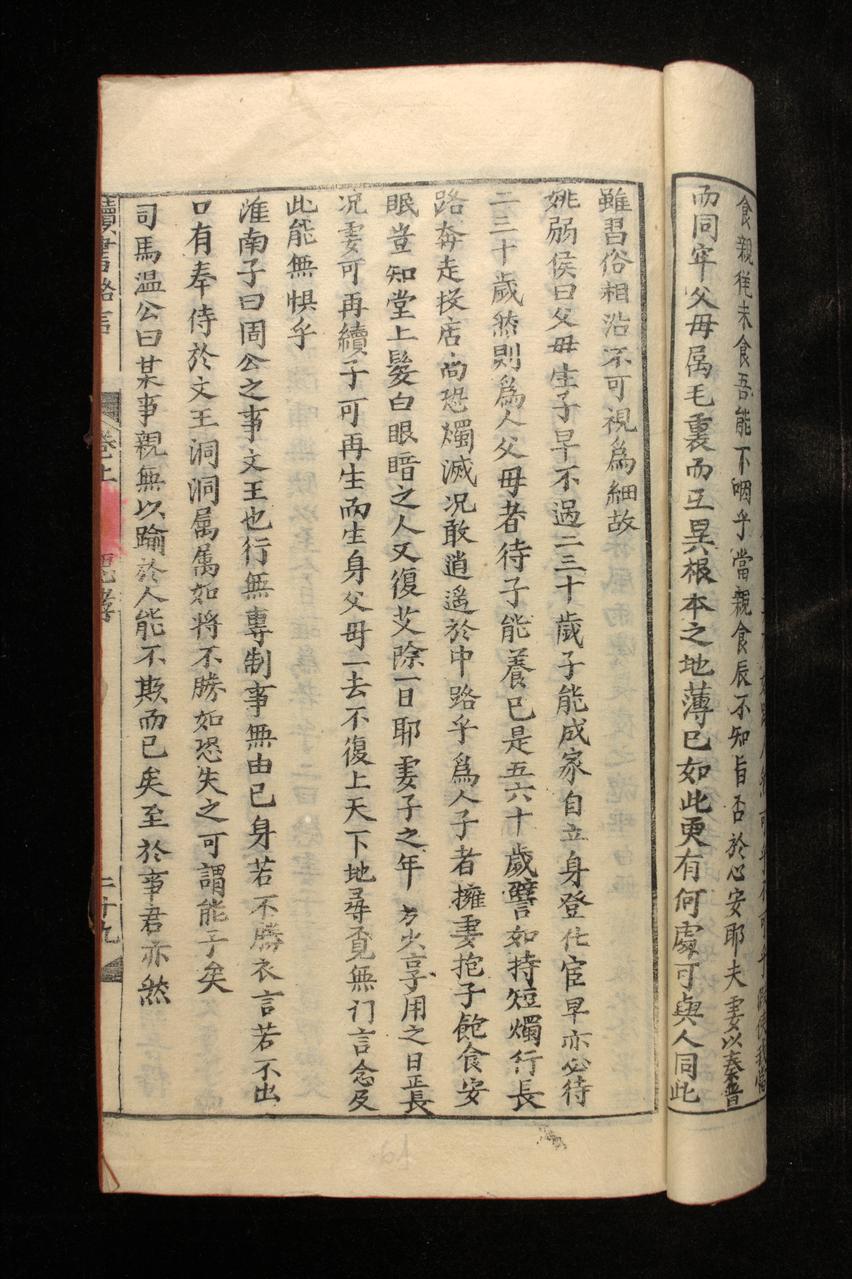 食親徃未食吾能下咽乎當親食辰不知旨否於心安耶夫妻以秦晉
而同牢父毋属毛裏而互異根本之地薄已如此更有何處可與人同此
雖習俗相沿不可視爲細故
姚弱侯曰父毋生子早不過二三十歲子能成家自立身登仕宦早亦必待
二三十歲然則爲人父母者待子能養已是五六十歲譬如持短燭行長
路奔走投店尚恐燭滅况敢逍遥於中路乎爲人子者擁妻抱子飽食安
眠豈知堂上髮白眼暗之人又復艾除一日耶妻子之年方火享用之日正長
况妻可再續子可再生而生身父毋一去不復上天下地尋覔無门言念及
此能無惧乎
淮南子曰周公之事文王也行無專制事無由已身若不勝衣言若不出
口有奉侍於文王洞洞属属如将不勝如恐失之可謂能子矣
司馬温公曰某事親無以踰於人能不欺而已矣至於事君亦然
讀書格言 卷上 思孝 二十九